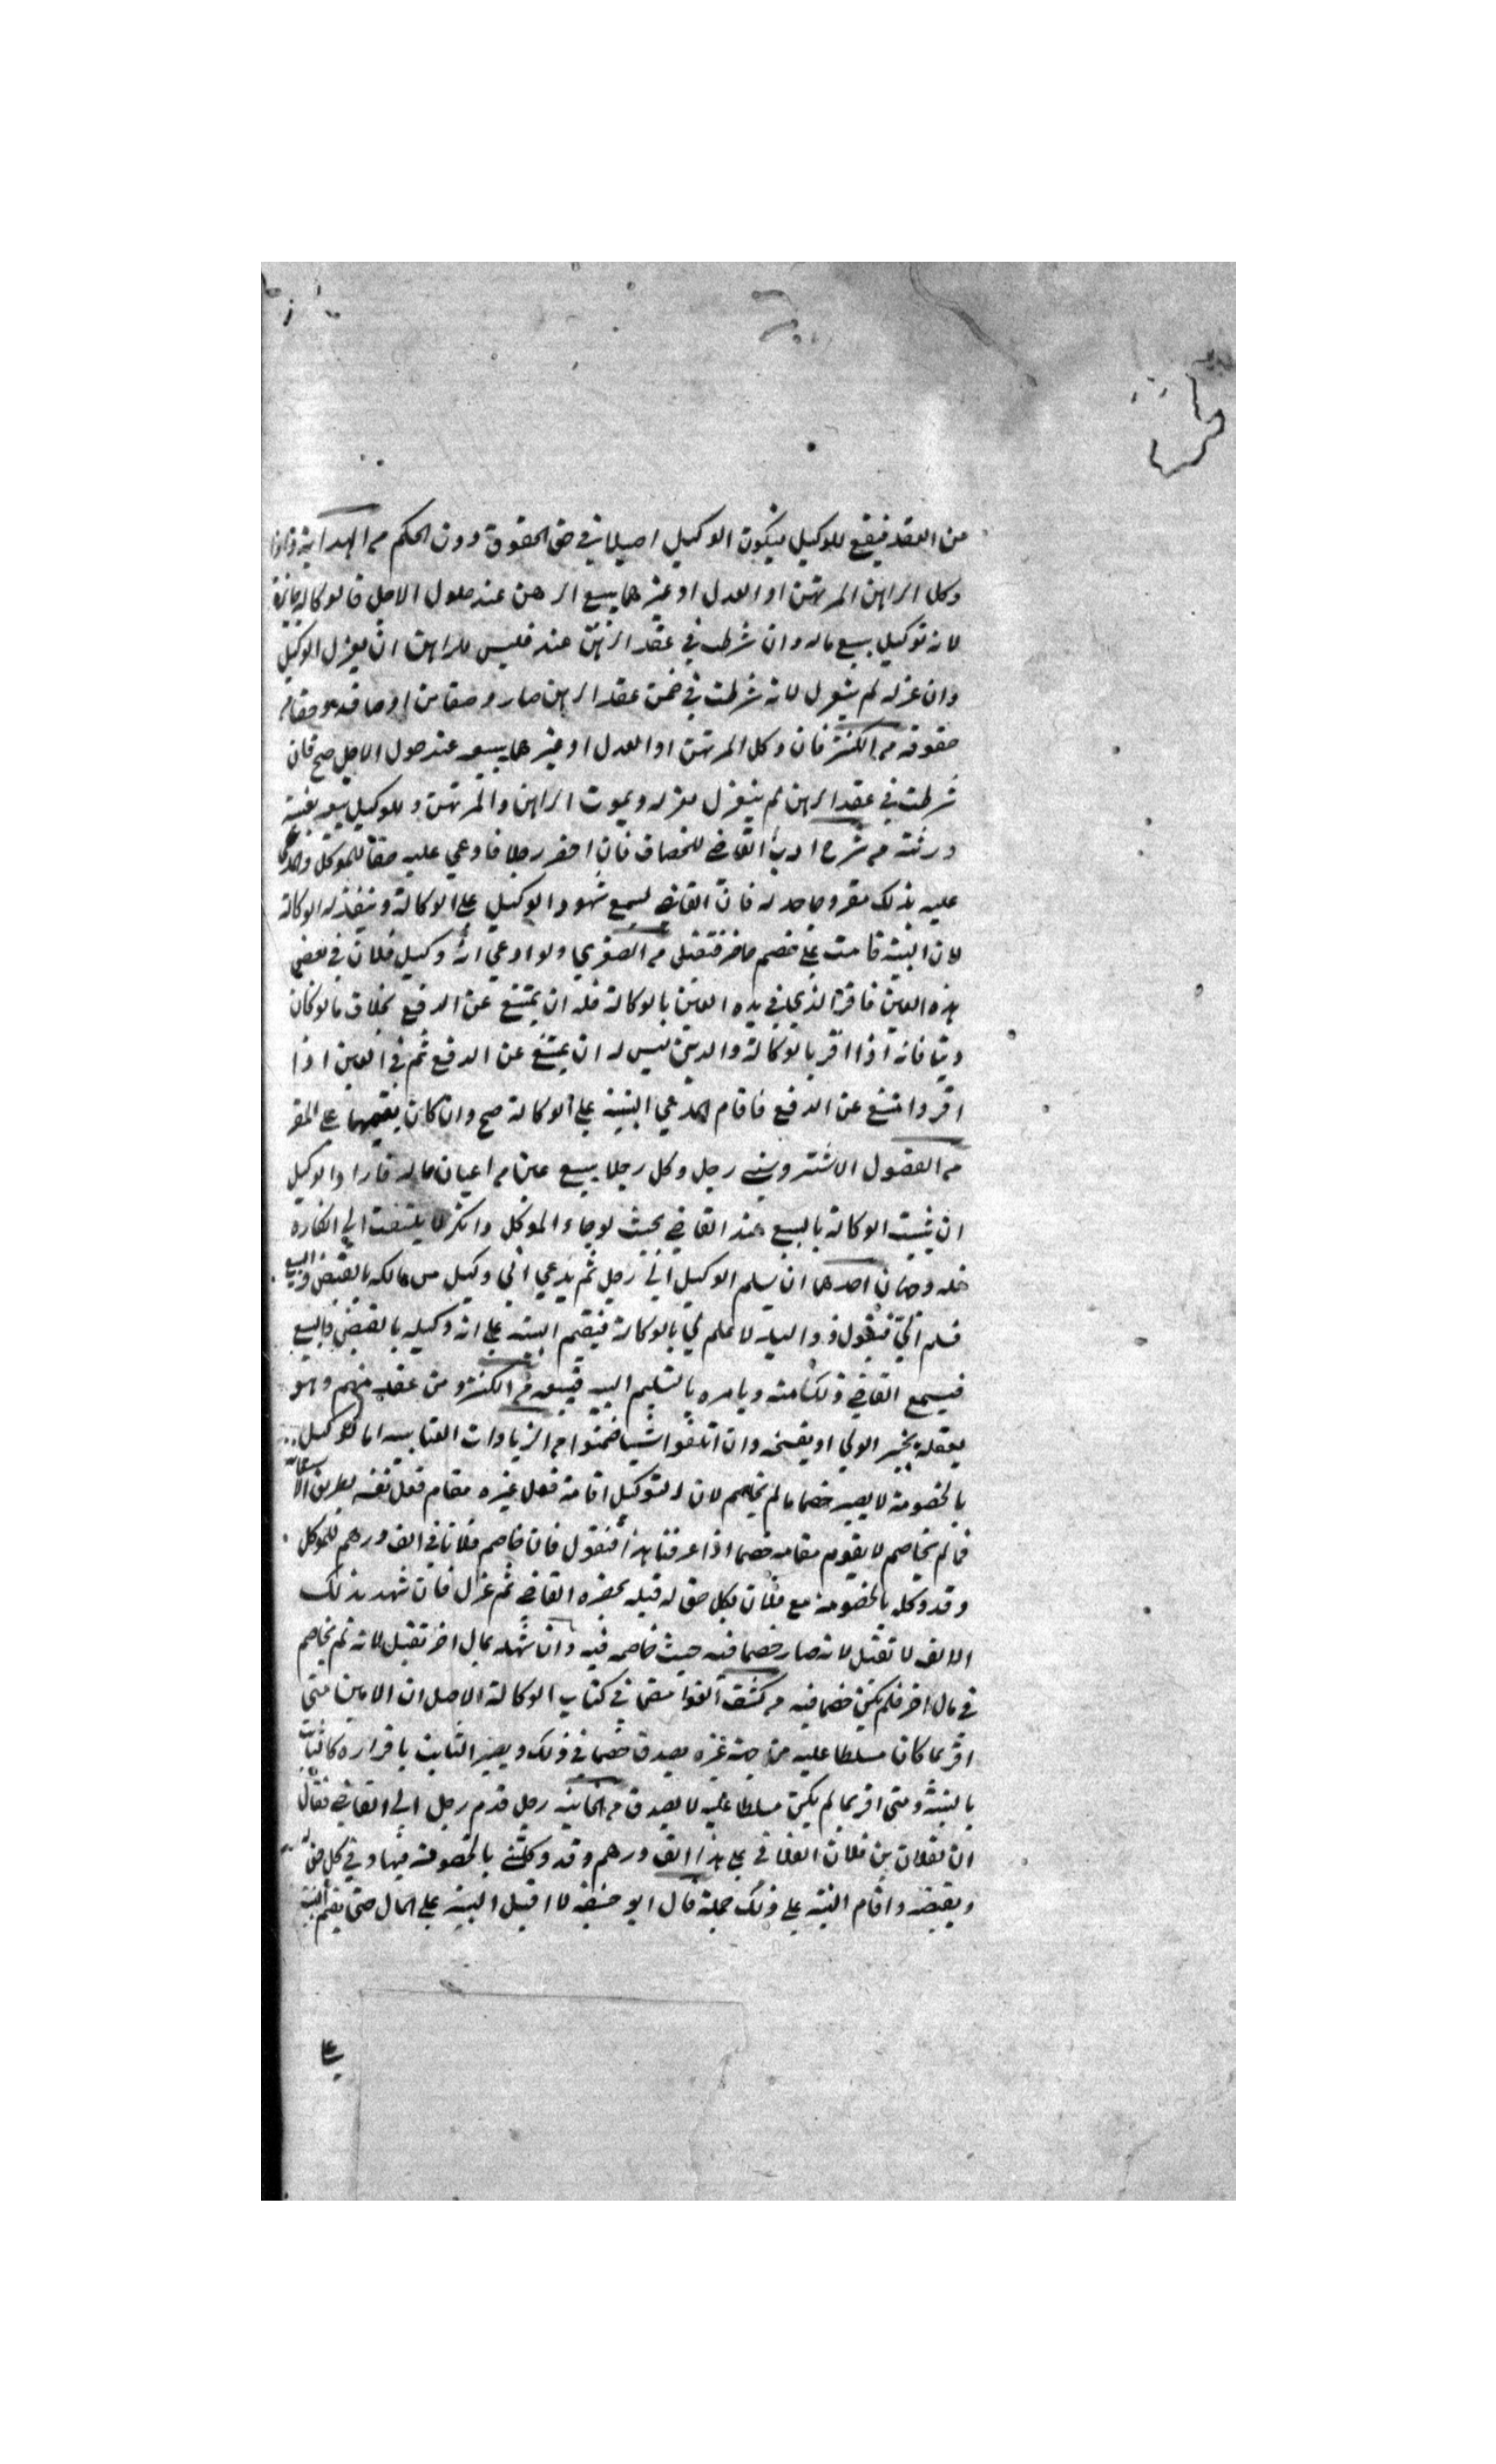 من العقد فيقع للوكيل فيكون الوكيل اصيلا في حق الحقوق دون الحكم من الهداية واذا
وكل الراهن المرتهن او العدل او غيرهما ببيع الرهن عند حلول الاجل فالوكالة جائزة
لانه توكيل ببيع ماله وان شرطت في عقد الرهن عند فليس للراهن ان يعزل الوكيل
وان عزله لم ينعزل لانه شرطت في ضمن عقد الرهن صار وصفا من اوصافه وحقا من
حقوقه من الكنز فان وكل المرتهن او العدل او غيرهما ببيعه عند حلول الاجل صح فان
شرطت في عقد الرهن لم ينعزل بعزله وبموت الراهن والمرتهن وللوكيل بيعه بغيبة
ورثته من شرح ادب القاضي للخصاف فان احضر رجلا فادعى عليه حقا للموكل والمدعى
عليه بذلك مقر وجاحد له فان القاضي يسمع شهود الوكيل على الوكالة وينفذ له الوكالة
لان البينة قامت على خصم حاضر فتقبل من الصغرى ولو ادعى انه وكيل فلان في بعض
هذه العين فاقر الذي في يده العين بالوكالة فله ان يمتنع عن الدفع بخلاف ما لو كان
دينا فانه اذا اقر بالوكالة والدين ليس له ان يمتنع عن الدفع ثم في العين اذا
اقر وامتنع عن الدفع فاقام المدعي البينة على الوكالة صح وان كان يقيمها على المقر
من الفصول الاشتروشني رجل وكل رجلا ببيع عين من اعيان ماله فاراد الوكيل
ان يثبت الوكالة بالبيع عند القاضي بحيث لو جاء الموكل وانكر لا يلتفت الى انكاره
فله وجهان احدهما ان يسلم الوكيل الى رجل ثم يدعي اني وكيل من مالكه بالقبض والبيع
فسلم الي فيقول ذو اليد لا علم لي بالوكالة فيقيم البينة على انه وكيله بالقبض والبيع
فيسمع القاضي ذلك منه ويامره بالتسليم اليه فيبيعه من الكنز ومن عقد منهم وهو
يعقله يخير الولي او يفسخه وان اتلفوا شيئا ضمنوا من الزيادات العتابيه اما الوكيل
بالخصومة لا يصير خصما ما لم يخاصم لان التوكيل اقامة فعل غيره مقام فعل نفسه بطريق
فما لم يخاصم لا يقوم مقامه خصما اذا عرفنا هذا فنقول فان خاصم فلانا في الف درهم للموكل
وقد وكله بالخصومة مع فلان بكل حق له قبله بحضرة القاضي ثم عزل فان شهد بذلك
الالف لا تقبل لانه صار خصما فيه حيث خاصمه فيه وان شهد بمال اخر تقبل لانه لم يخاصم
في مال اخر فلم يكن خصما فيه من كشف في كتاب الوكالة الاصل ان الامين متى
اقر بما كان مسلطا عليه من جهة غيره يصدق في ذلك ويصير الثابت باقراره كالثابت
بالبينة ومتى اقر بما لم يكن مسلطا عليه لا يصدق من الخانية رجل قدم رجل الى القاضي فقال
ان لفلان بن فلان الفلاني على هذا الف درهم وقد وكلني بالخصومة فيها وفي كل حق له
وبقبضه واقام البينة على ذلك جملة قال ابو حنيفه لا اقبل البينة على المال حتى يقيم البينة
على